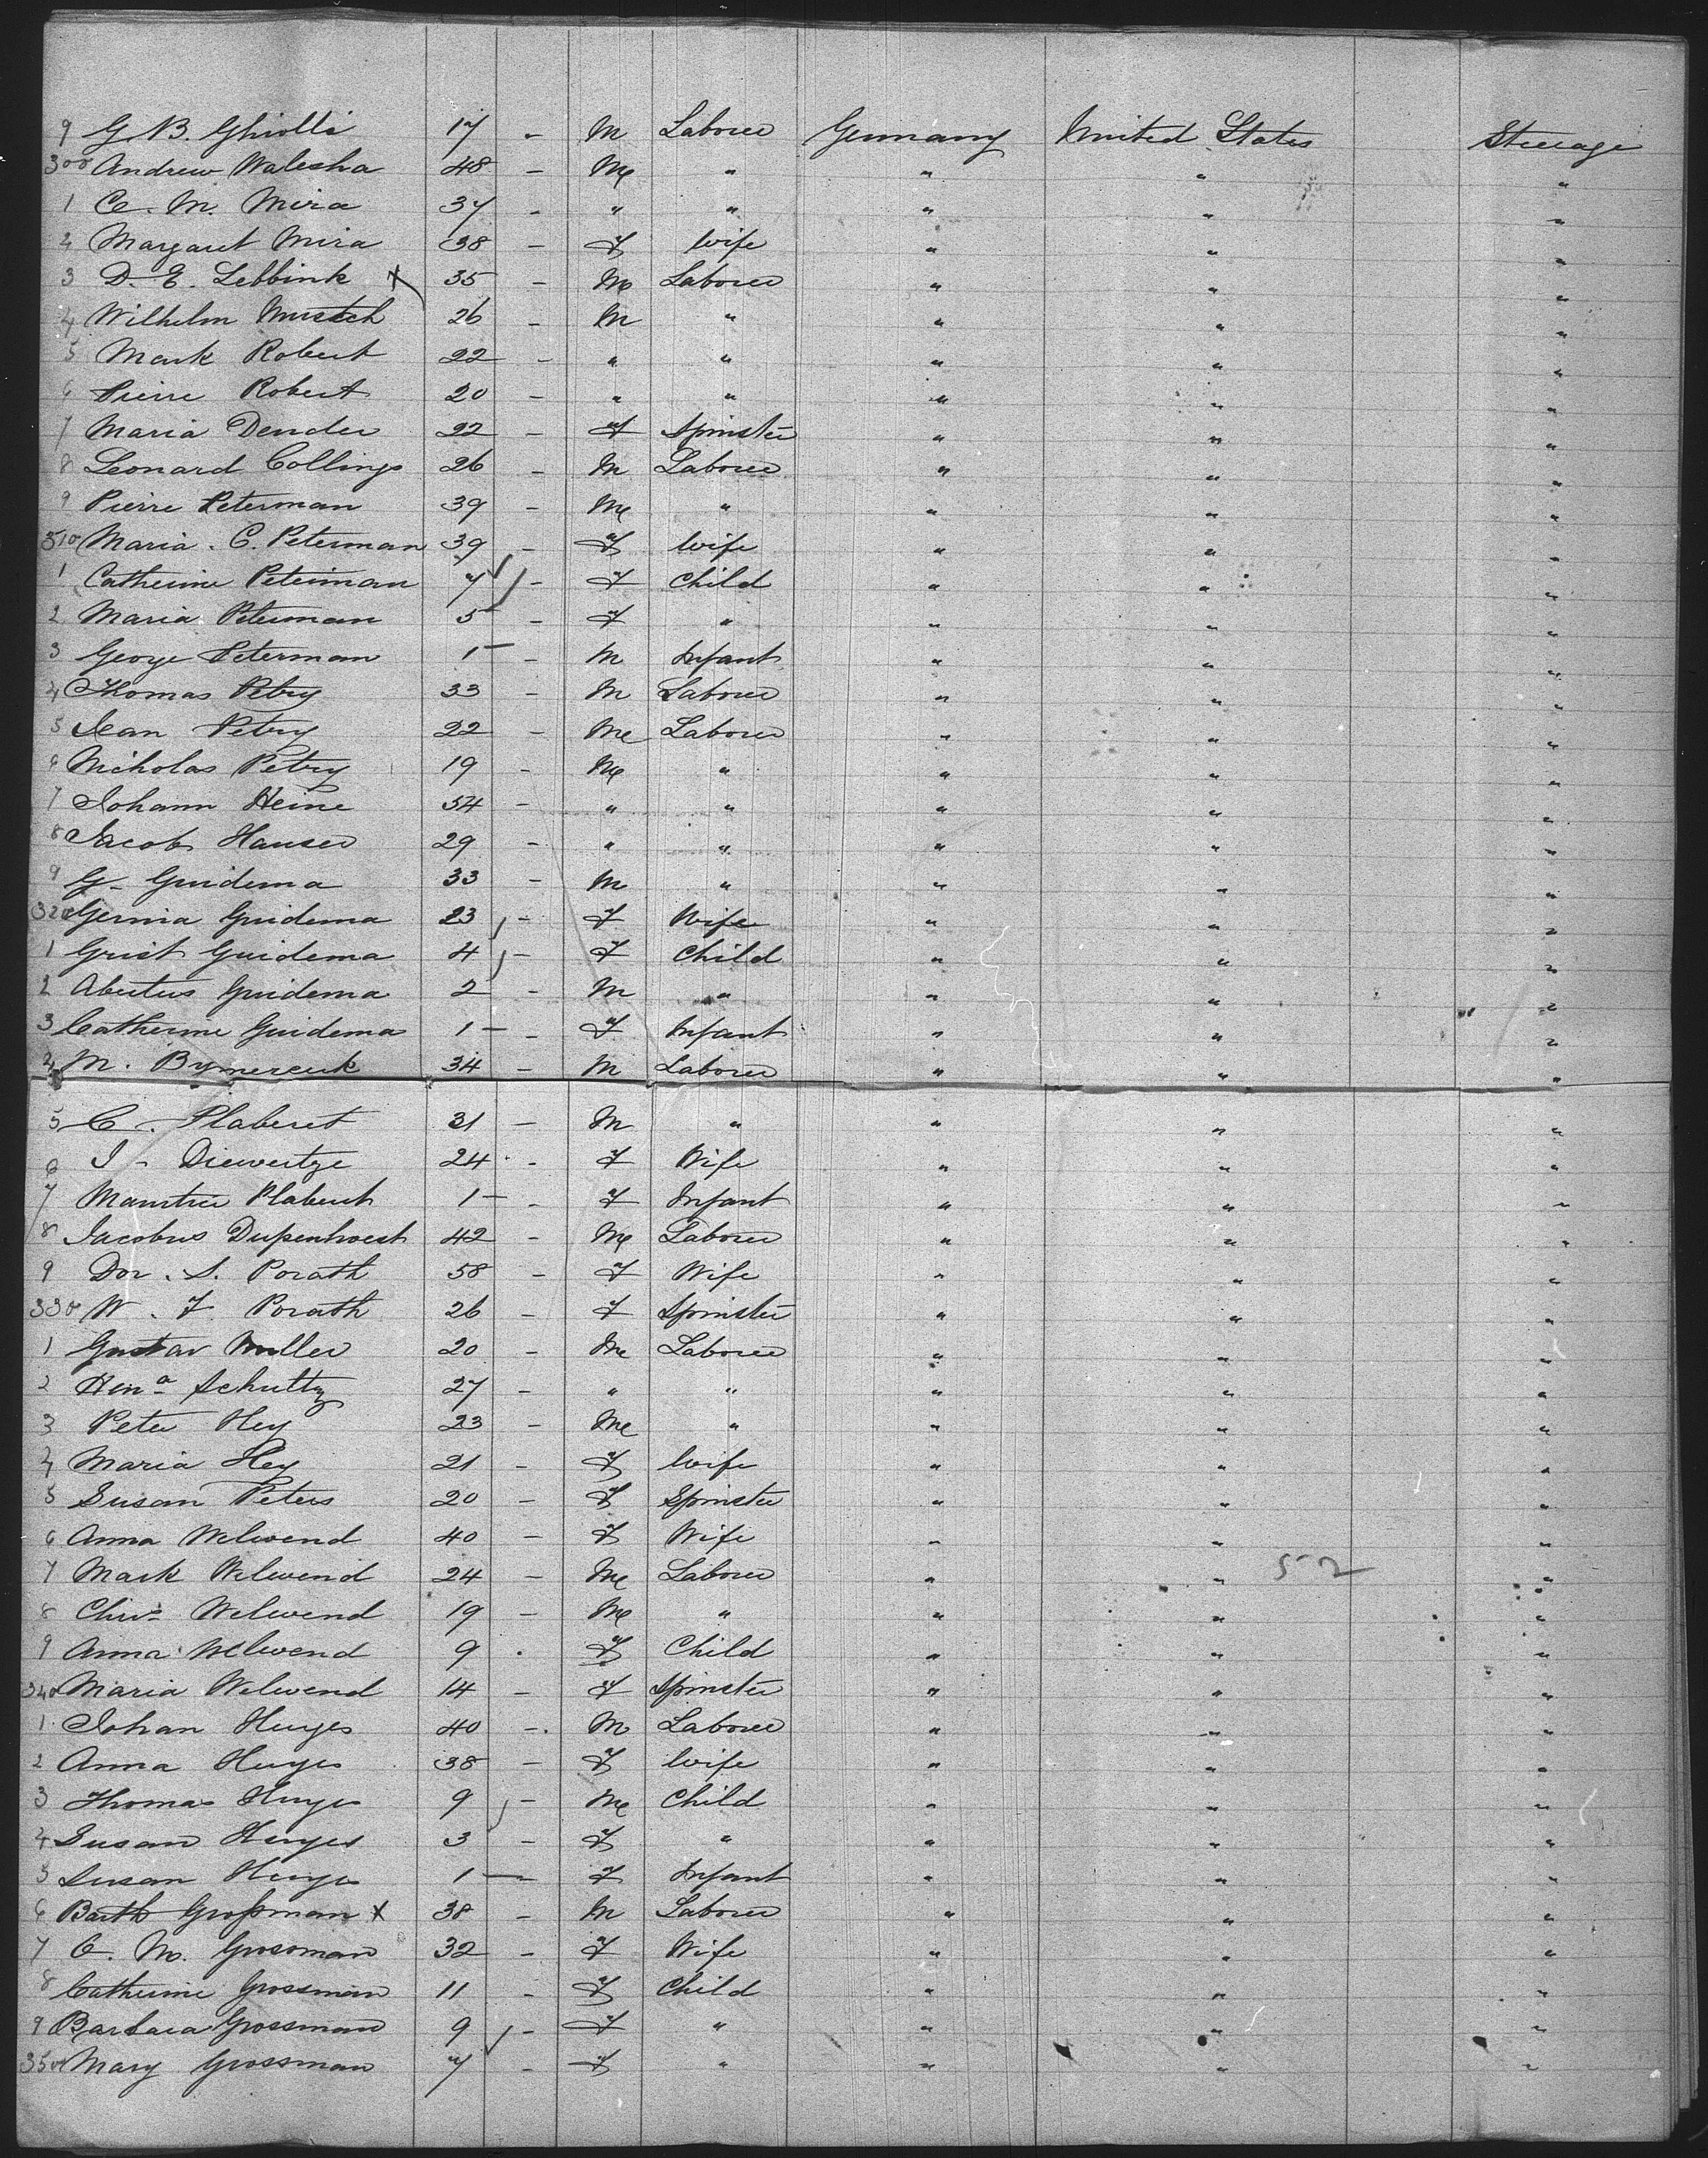 9 G. B. Ghiolli 17 - M Laborer Germany United States Steerage
300 Andrew Walesha 48 - M " " " "
1 C. M. Mira 37 - " " " " "
2 Margaret Mira 38 - F Wife " " "
3 D. E. Lebbink x 35 - M Laborer " " "
4 Wilhelm Mustch 26 - M " " " "
5 Mark Robert 22 - " " " " "
6 Pierre Robert 20 - " " " " "
7 Maria Dender 22 - F Spinster " " "
8 Leonard Collings 26 - M Laborer " " "
9 Pierre Peterman 39 - M " " " "
310 Maria. C. Peterman 39 - F Wife " " "
1 Catherine Peterman 7 - F Child " " "
2 Maria Peterman 5 - F " " " "
3 George Peterman 1 - - M Infant " " "
4 Thomas Petry 33 - M Laborer " " "
5 Jean Petry 22 - M Laborer " " "
6 Nicholas Petry 19 - M " " " "
7 Johann Heine 54 - " " " " "
8 Jacob Hauser 29 - " " " " "
9 G- Guidema 33 - M " " " "
320 Gernia Guidema 23 - F Wife " " "
1 Grist Guidema 4 - F Child " " "
2 Abertus Guidema 2 - M " " " "
3 Catherine Guidema 1 - - F Infant " " "
4 M. 34 - M Laborer " " "
5 C. Plaberet 31 - M " " " "
6 J - Diewertze 24 - F Wife " " "
7 1 - - F Infant " " "
8 Jacobus 42 - M Laborer " " "
9 Dor. S. Porath 58 - F Wife " " "
330 W. F. Porath 26 - F Spinster " " "
1 Gustav Muller 20 - M Laborer " " "
2 Hena Schultz 27 - " " " " "
3 Peter Hey 23 - M " " " "
4 Maria Hey 21 - F Wife " " "
5 Susan Peters 20 - F Spinster " " "
6 Anna Welwend 40 - F Wife " " "
7 Mark Welwend 24 - M Laborer " " 52 "
8 Chrs Welwend 19 - M " " " "
9 Anna Welwend 9 . F Child " " "
340 Maria Welwend 14 - F Spinster " " "
1 Johan Huyes 40 - M Laborer " " "
2 Anna Huyes 38 - F Wife " " "
3 Thomas Huyes 9 - M Child " " "
4 Susan Huyes 3 - F " " " "
5 Susan Huyes 1 - - F Infant " " "
6 Barth Grossman x 38 - M Laborer " " "
7 C. M. Grossman 32 - F Wife " " "
8 Catherine Grossman 11 - F Child " " "
9 Barbara Grossman 9 - F " " " "
350 Mary Grossman 7 - F " " " "